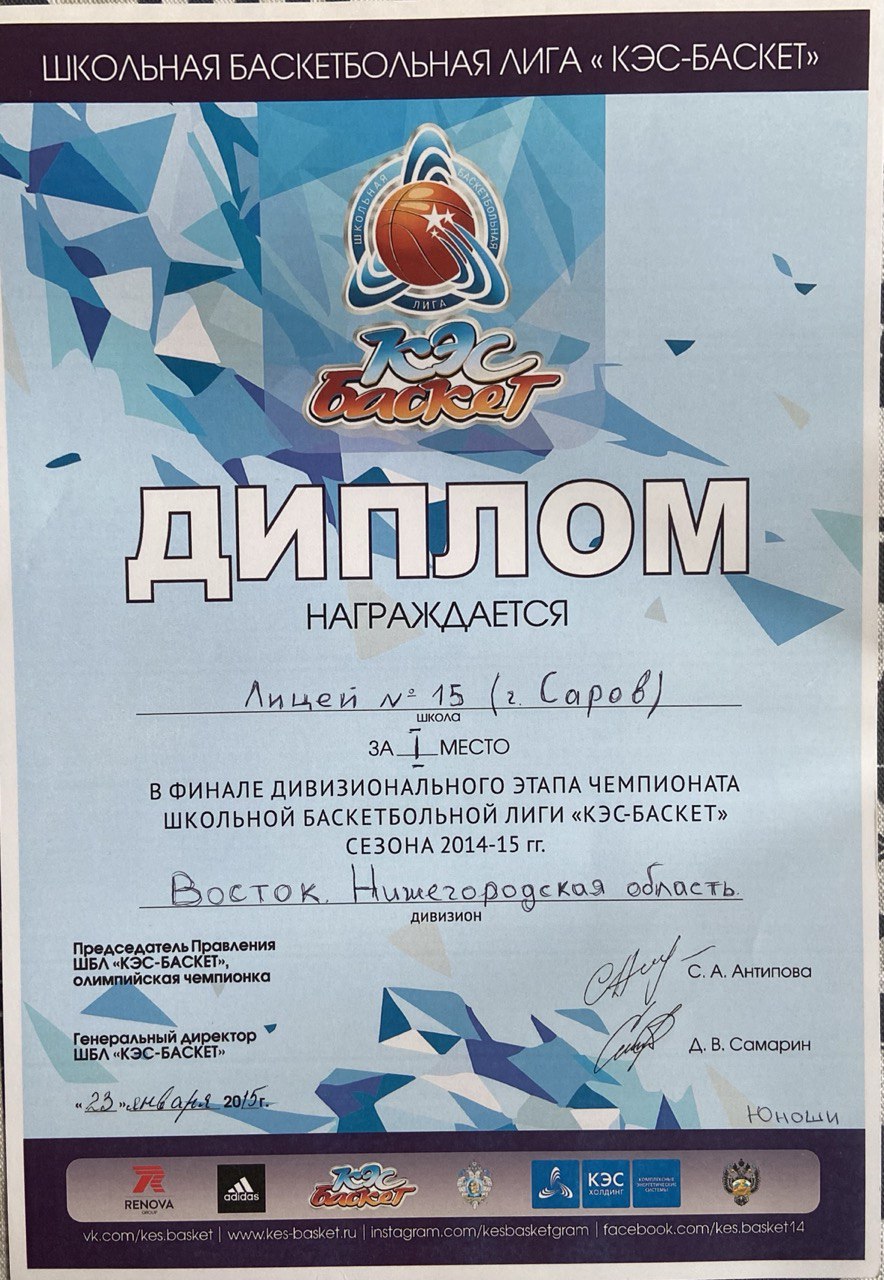 ШКОЛЬНАЯ БАСКЕТБОЛЬНАЯ ЛИГА « КЭС-БАСКЕТ»
ШКОЛЬНАЯ БАСКЕТБОЛЬНАЯ
ЛИГА
КЭС
баскет
ДИПЛОМ
НАГРАЖДАЕТСЯ
Лицей № 15 (г. Саров)
школа
ЗА I МЕСТО
В ФИНАЛЕ ДИВИЗИОНАЛЬНОГО ЭТАПА ЧЕМПИОНАТА
ШКОЛЬНОЙ БАСКЕТБОЛЬНОЙ ЛИГИ «КЭС-БАСКЕТ»
СЕЗОНА 2014-15 гг.
Восток. Нижегородская область.
дивизион
Председатель Правления
ШБЛ «КЭС-БАСКЕТ»,
олимпийская чемпионка
С. А. Антипова
Генеральный директор
ШБЛ «КЭС-БАСКЕТ»
Д. В. Самарин
«23» января 2015г.
Юноши
RENOVA
GROUP
adidas
КЭС
баскет
КЭС
ХОЛДИНГ
КОМПЛЕКСНЫЕ
ЭНЕРГЕТИЧЕСКИЕ
СИСТЕМЫ
vk.com/kes.basket | www.kes-basket.ru | instagram.com/kesbasketgram | facebook.com/kes.basket14